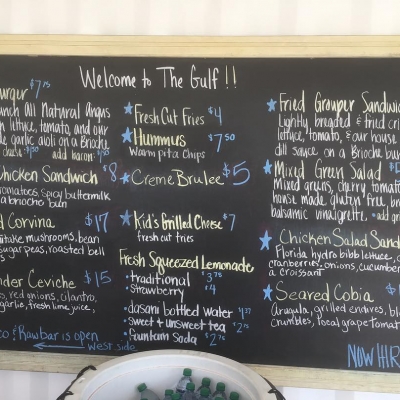 Welcome to The Gulf !!
urger $7.75
nch All Natural Angus
h lettuce, tomato, and our
de garlic aioli on a Brioche
add bacon
Chicken Sandwich $8
omatoes, spicy buttermilk
a brioche bun
d Corvina $17
itake mushrooms, bean
sugar peas, roasted bell
nder Ceviche $15
s, red onions, cilantro,
garlic, fresh lime juice,
co & Rawbar is open
West side
Fresh Cut Fries $4
Hummus $7.50
Warm pita Chips
Creme Brulee $5
Kid's Grilled Cheese $7
fresh cut fries
Fresh Squeezed Lemonade
• traditional $3.75
• Strawberry $4
• dasani bottled water
• sweet & unsweet tea $2.75
• fountain soda $2.75
Fried Grouper Sandwic
Lightly breaded & fried cri
lettuce, tomato, & our house
dill sauce on a Brioche bun
Mixed Green Salad
Mixed greens, cherry tomato
house made gluten free br
balsamic vinaigrette. *add gri
Chicken Salad Sand
Florida hydro bibb lettuce, c
cranberries, onions, cucumbe
a croissant
Seared Cobia
Arugula, grilled endives, bl
crumbles, local grape tomat
NOW HIR